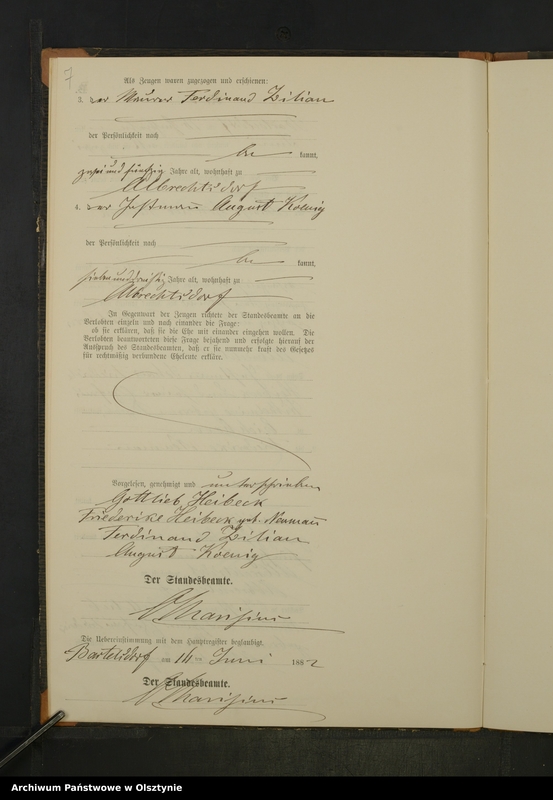 7
Als Zeugen waren zugezogen und erschienen:
3. der Maurer Ferdinand Zilian
der Persönlichkeit nach
be kannt,
zwei und fünfzig Jahre alt, wohnhaft zu
Albrechtsdorf
4. der Instmann August Koenig
der Persönlichkeit nach
be kannt,
sieben und dreißig Jahre alt, wohnhaft zu
Albrechtsdorf
In Gegenwart der Zeugen richtete der Standesbeamte an die
Verlobten einzeln und nach einander die Frage:
ob sie erklären, daß sie die Ehe mit einander eingehen wollen. Die
Verlobten beantworteten diese Frage bejahend und erfolgte hierauf der
Ausspruch des Standesbeamten, daß er sie nunmehr kraft des Gesetzes
für rechtmäßig verbundene Eheleute erkläre.
Vorgelesen, genehmigt und unterschrieben
Gottlieb Heibeck
Friederike Heibeck geb. Neumann
Ferdinand Zilian
August Koenig
Der Standesbeamte.
Die Uebereinstimmung mit dem Hauptregister beglaubigt.
Bartelsdorf am 14 ten Juni 1882
Der Standesbeamte.
Archiwum Państwowe w Olsztynie